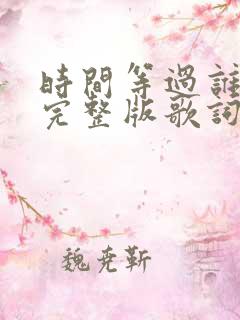 時間等過誰
完整版歌詞
魏尭靳